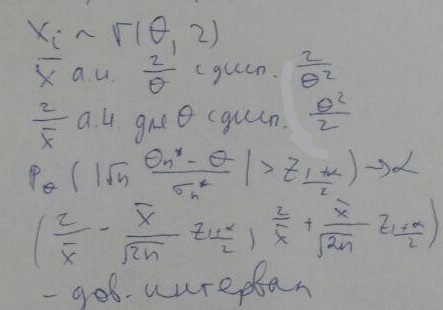 Xi ~ Γ(θ, 2)
X̄ а.н. 2/θ с дисп. 2/θ²
2/X̄ а.н для θ с дисп. θ²/2
Pθ(|√n (θn* - θ)/σn*| > z_{(1+α)/2}) → α
(2/X̄ - X̄/√2n z_{(1+α)/2}, 2/X̄ + X̄/√2n z_{(1+α)/2})
- дов. интервал